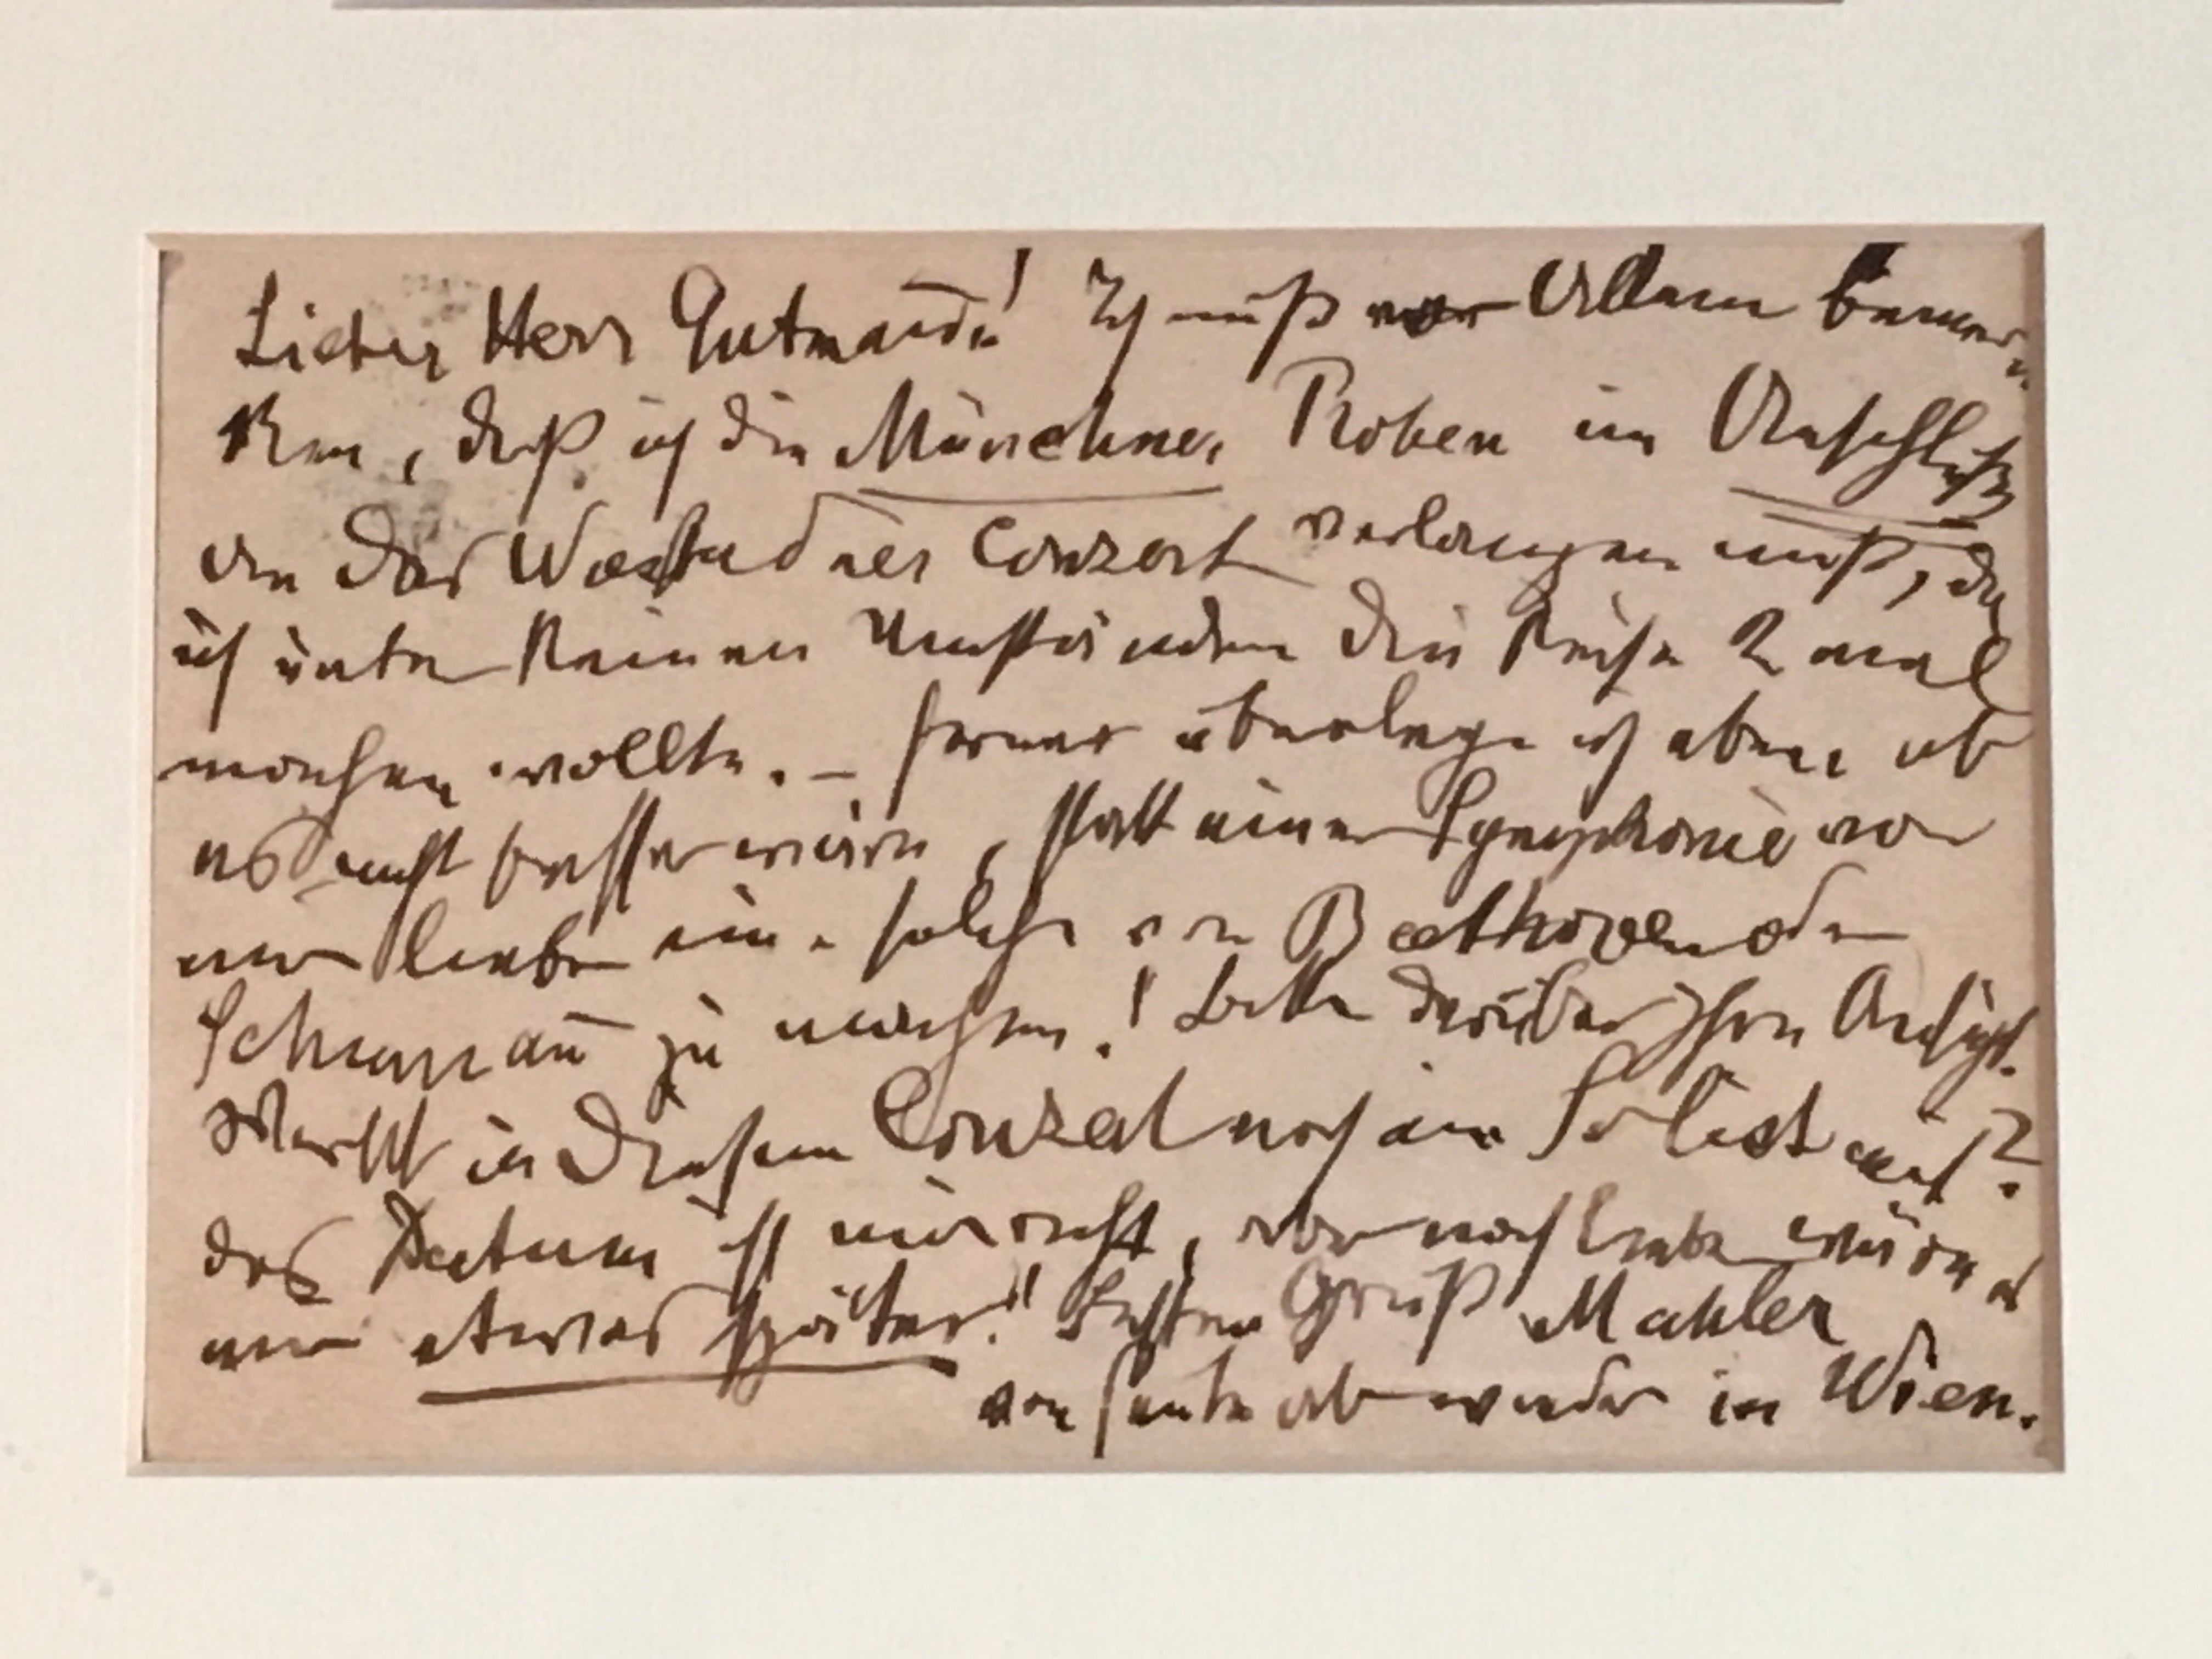 Lieber Herr Gutmann! Ich muß vor Allem bemer-
ken, daß ich die Münchner Proben im Anschluß
an das Wiesbadner Conzert verlangen muß, da
ich unter keinen Umständen die Reise 2 mal
machen wollte. – Ferner überlege ich eben, ob
es nicht besser wäre, statt einer Symphonie von
mir lieber eine solche von Beethoven oder
Schumann zu machen! Bitte darüber Ihre Ansicht.
Wirkt in diesem Conzert noch ein Solist mit?
das Datum ist mir recht, aber noch lieber wäre es
mir etwas später! Besten Gruß Mahler
von heute ab wieder in Wien.